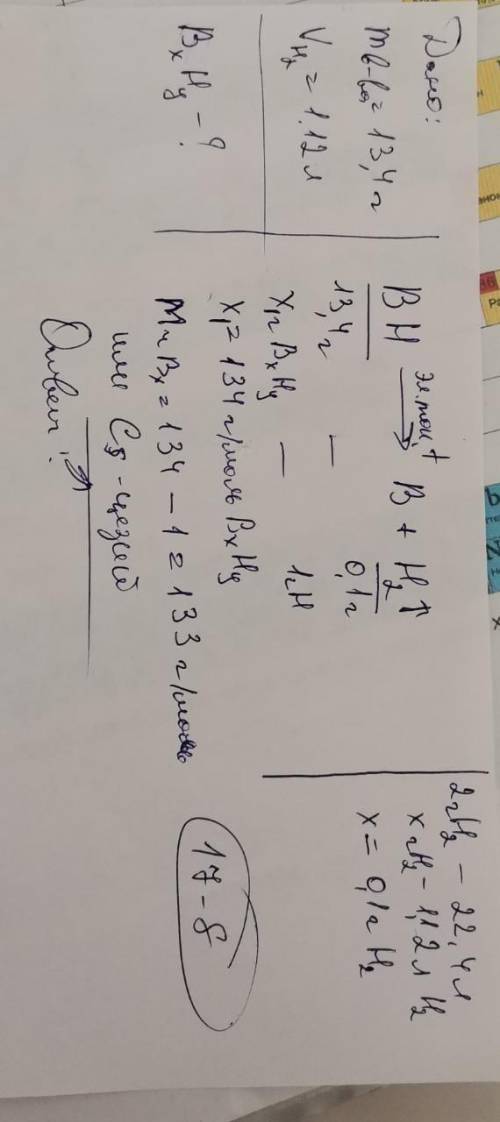 Дано:
m в-ва = 13,4 г
V H₂ = 1.12 л
BₓHᵧ - ?
BH эл.ток, t → B + H₂↑
13,4 г — 0,1 г
X₁г BₓHᵧ — 1г H
X₁ = 134 г/моль BₓHᵧ
Mr Bₓ = 134 - 1 = 133 г/моль
или Cs - цезий
Ответ: ↗
2г H₂ - 22,4 л
x г H₂ - 1,12 л H₂
x = 0,1 г H₂
17-8